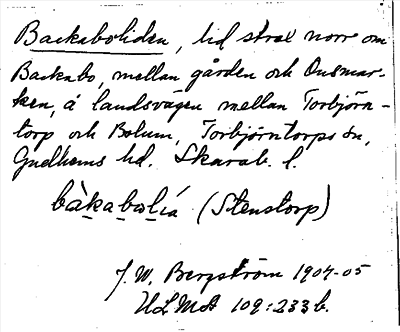 Backaboliden, lid strax norr om
Backabo, mellan gården och Onsmar-
ken, å landsvägen mellan Torbjörn-
torp och Bolum, Torbjörntorps sn,
Gudhems hd. Skarab. l.
bàkabolía (Stenstorp)
J. W. Bergström 1904-05
ULMA 109:233 b.